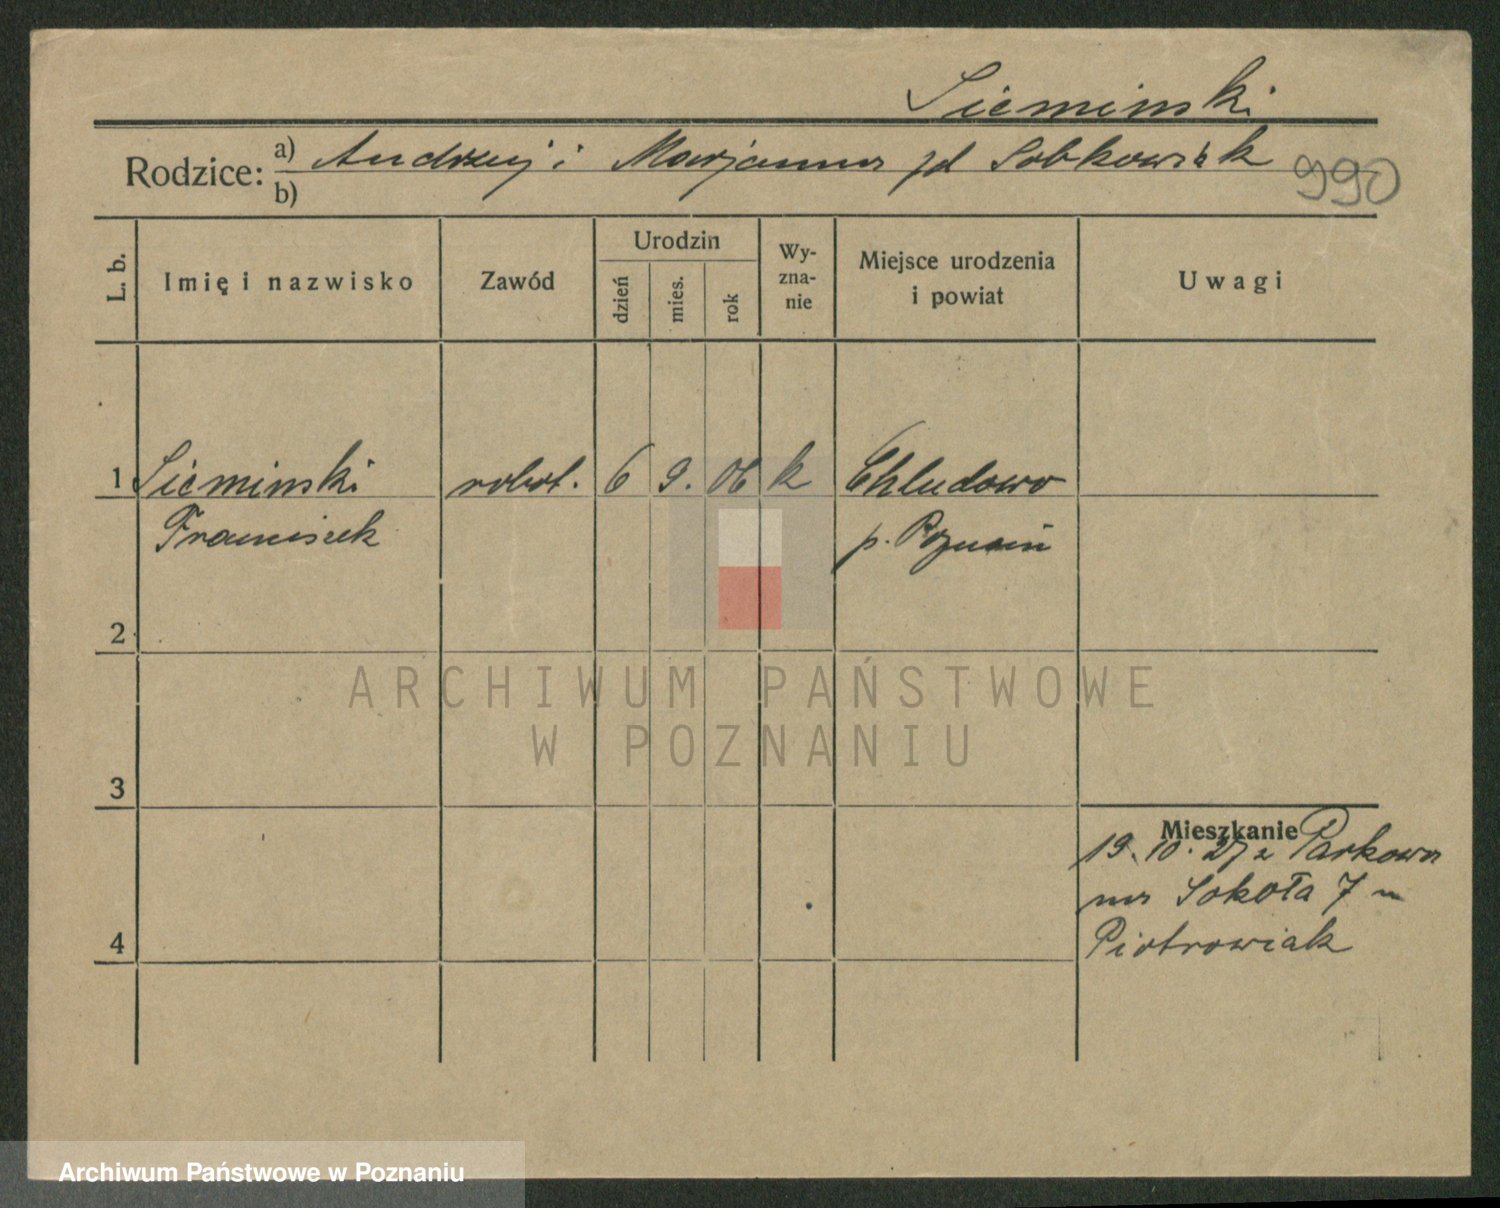 Sieminski
Rodzice: a) Andrzej i Marjanna zd Sobkowiak
b)
990
L. b.
Imię i nazwisko
Zawód
Urodzin
dzień
mies.
rok
Wy-
zna-
nie
Miejsce urodzenia
i powiat
Uwagi
1 Sieminski robot. 6 9. 06 k Chludowo
Franciszek p. Poznań
2
ARCHIWUM PAŃSTWOWE
W POZNANIU
3
Mieszkanie
19. 10. 27 z Parkowa
na Sokoła 7 u
Piotrowiak
4
Archiwum Państwowe w Poznaniu